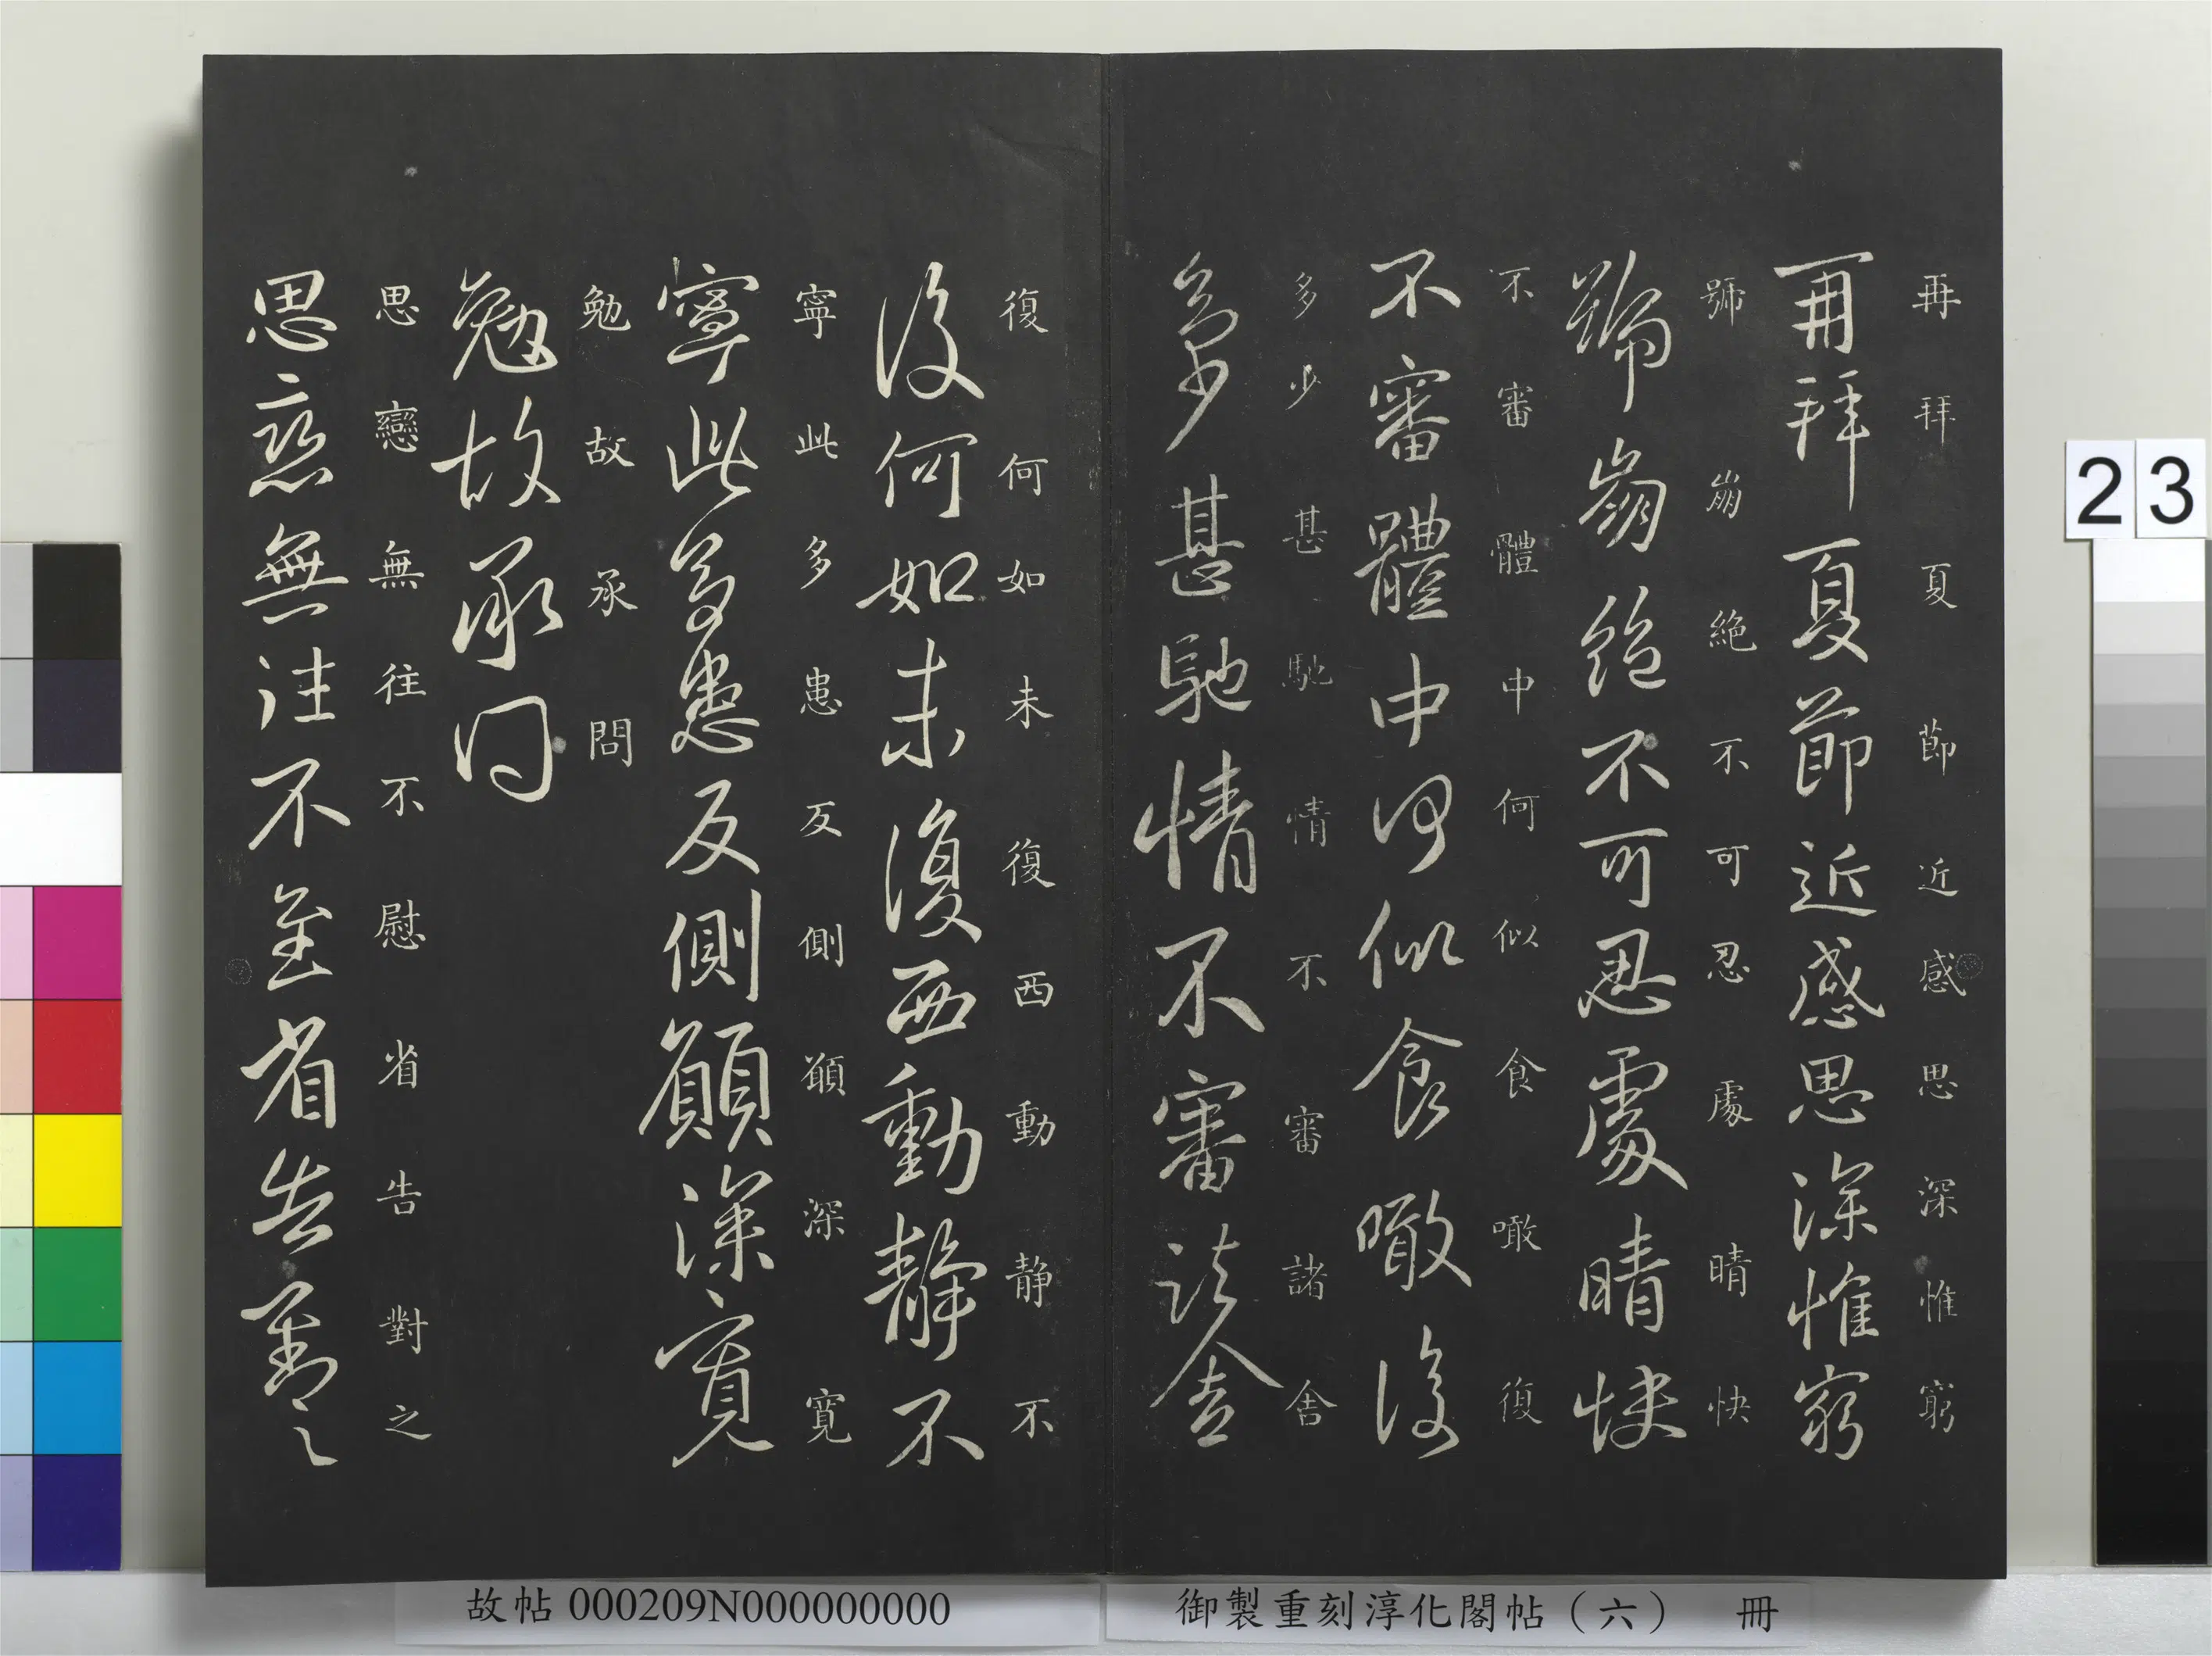 再拜夏節近感思深惟窮
再拜夏節近感思深惟窮
號崩絕不可忍處晴快
號崩絕不可忍處晴快
不審體中何似食噉復
不審體中何似食噉復
多少甚馳情不審諸舍
多少甚馳情不審諸舍
復何如未復西動靜不
復何如未復西動靜不
寧此多患反側顧深寬
寧此多患反側顧深寬
勉故承問
勉故承問
思戀無往不慰省告對之
思戀無往不至省告對之
23
故帖 000209N000000000
御製重刻淳化閣帖（六） 冊